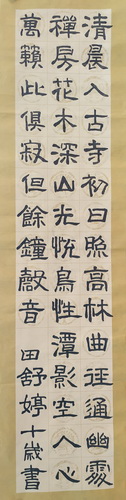 清晨入古寺初日照高林曲徑通幽處
禪房花木深山光悅鳥性潭影空人心
萬籟此俱寂但餘鐘磬音 田舒婷十歲書